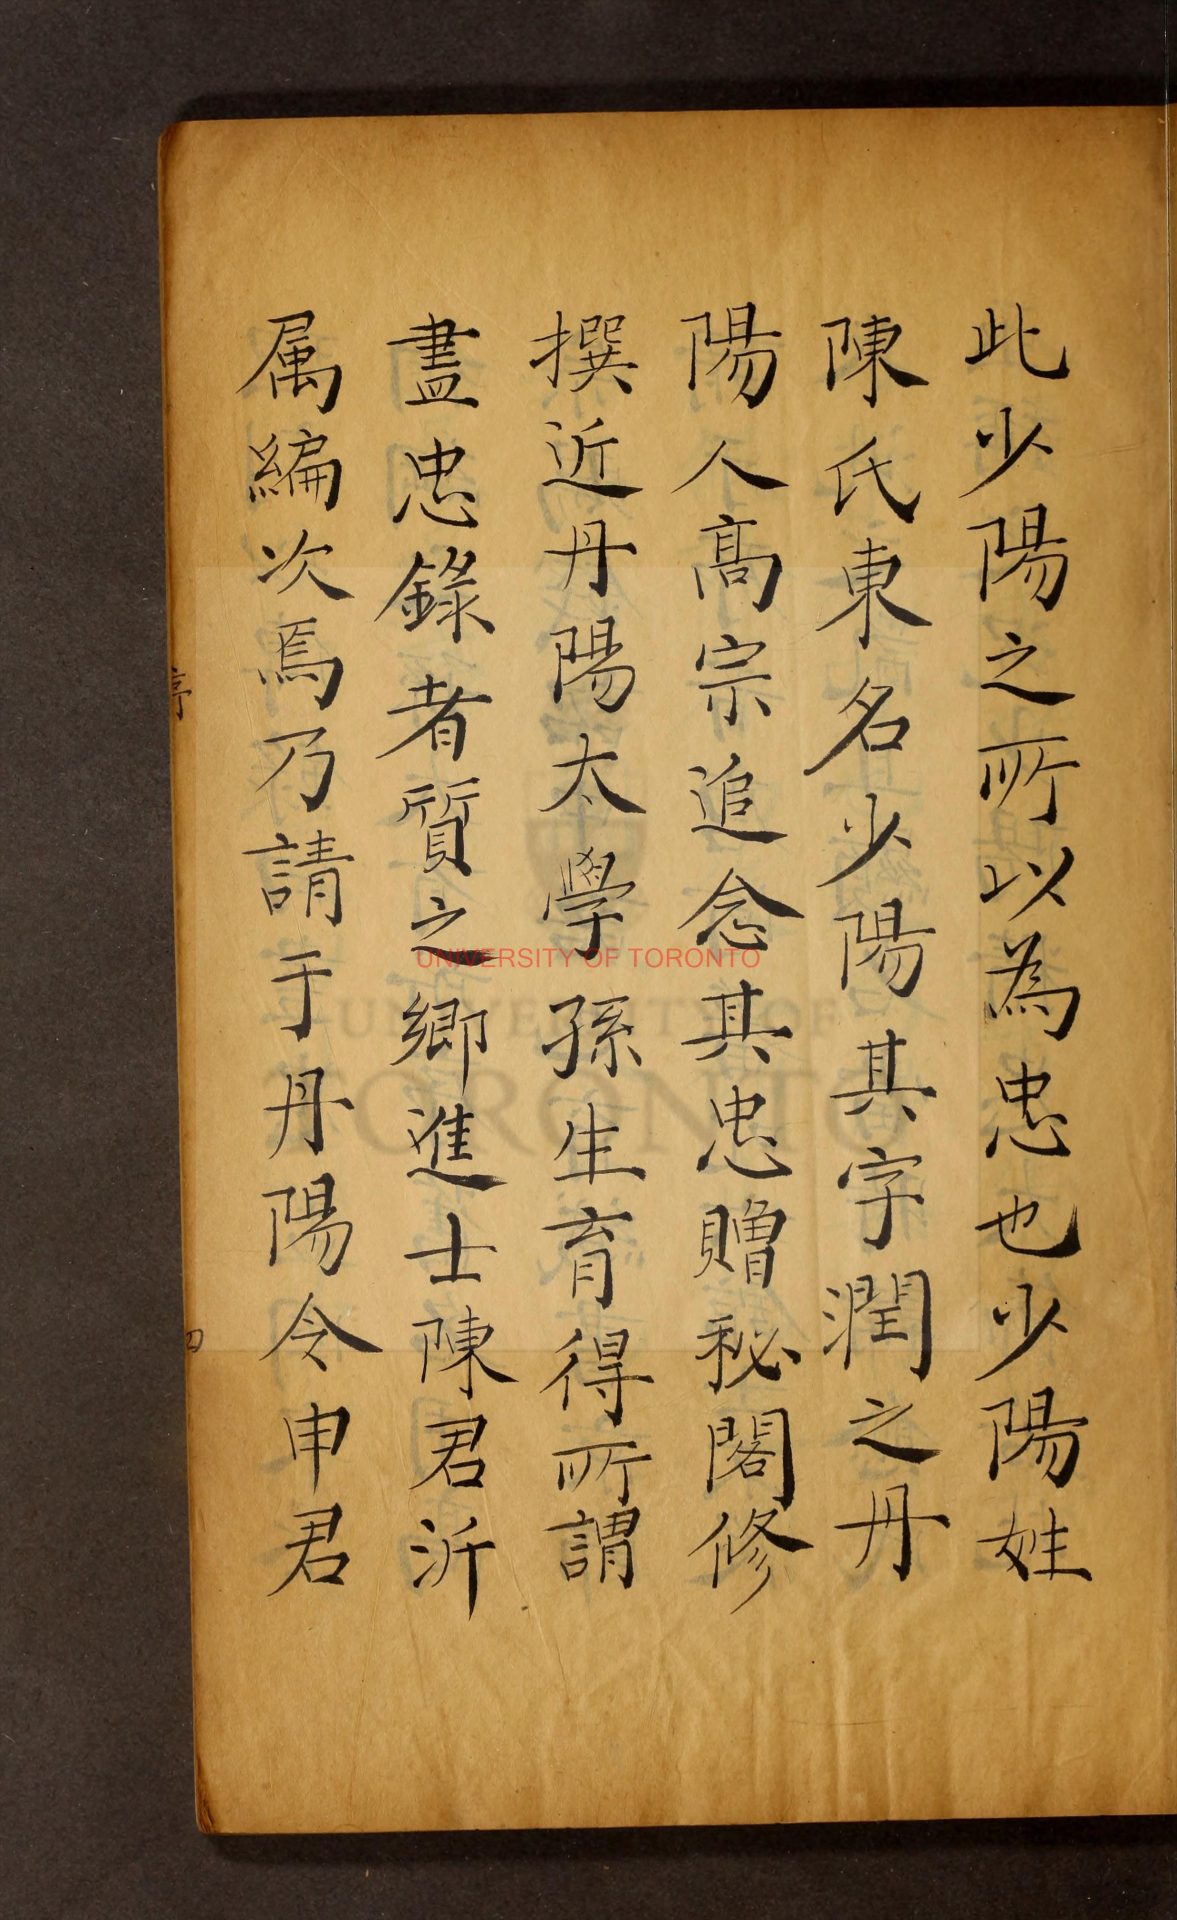 此少陽之所以為忠也少陽姓
陳氏東名少陽其字潤之丹
陽人高宗追念其忠贈秘閣修
撰近丹陽太學孫生育得所謂
盡忠錄者質之鄉進士陳君沂
属編次焉乃請于丹陽令申君
序
四
UNIVERSITY OF TORONTO
UNIVERSITY OF
TORONTO